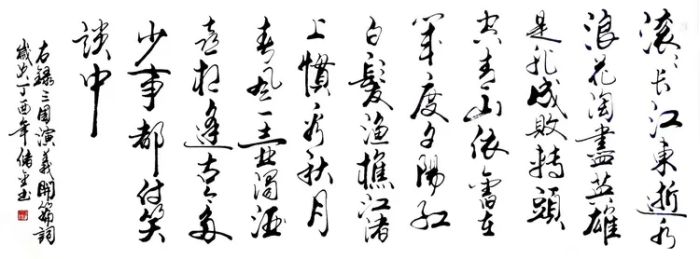 滚〻长江東逝水
浪花淘盡英雄
是非成敗轉頭
空青山依舊在
幾度夕陽红
白髮渔樵江渚
上慣看秋月
春風一壺濁酒
喜相逢古今多
少事都付笑
談中
右錄三國演義開篇詞
歲次丁酉年